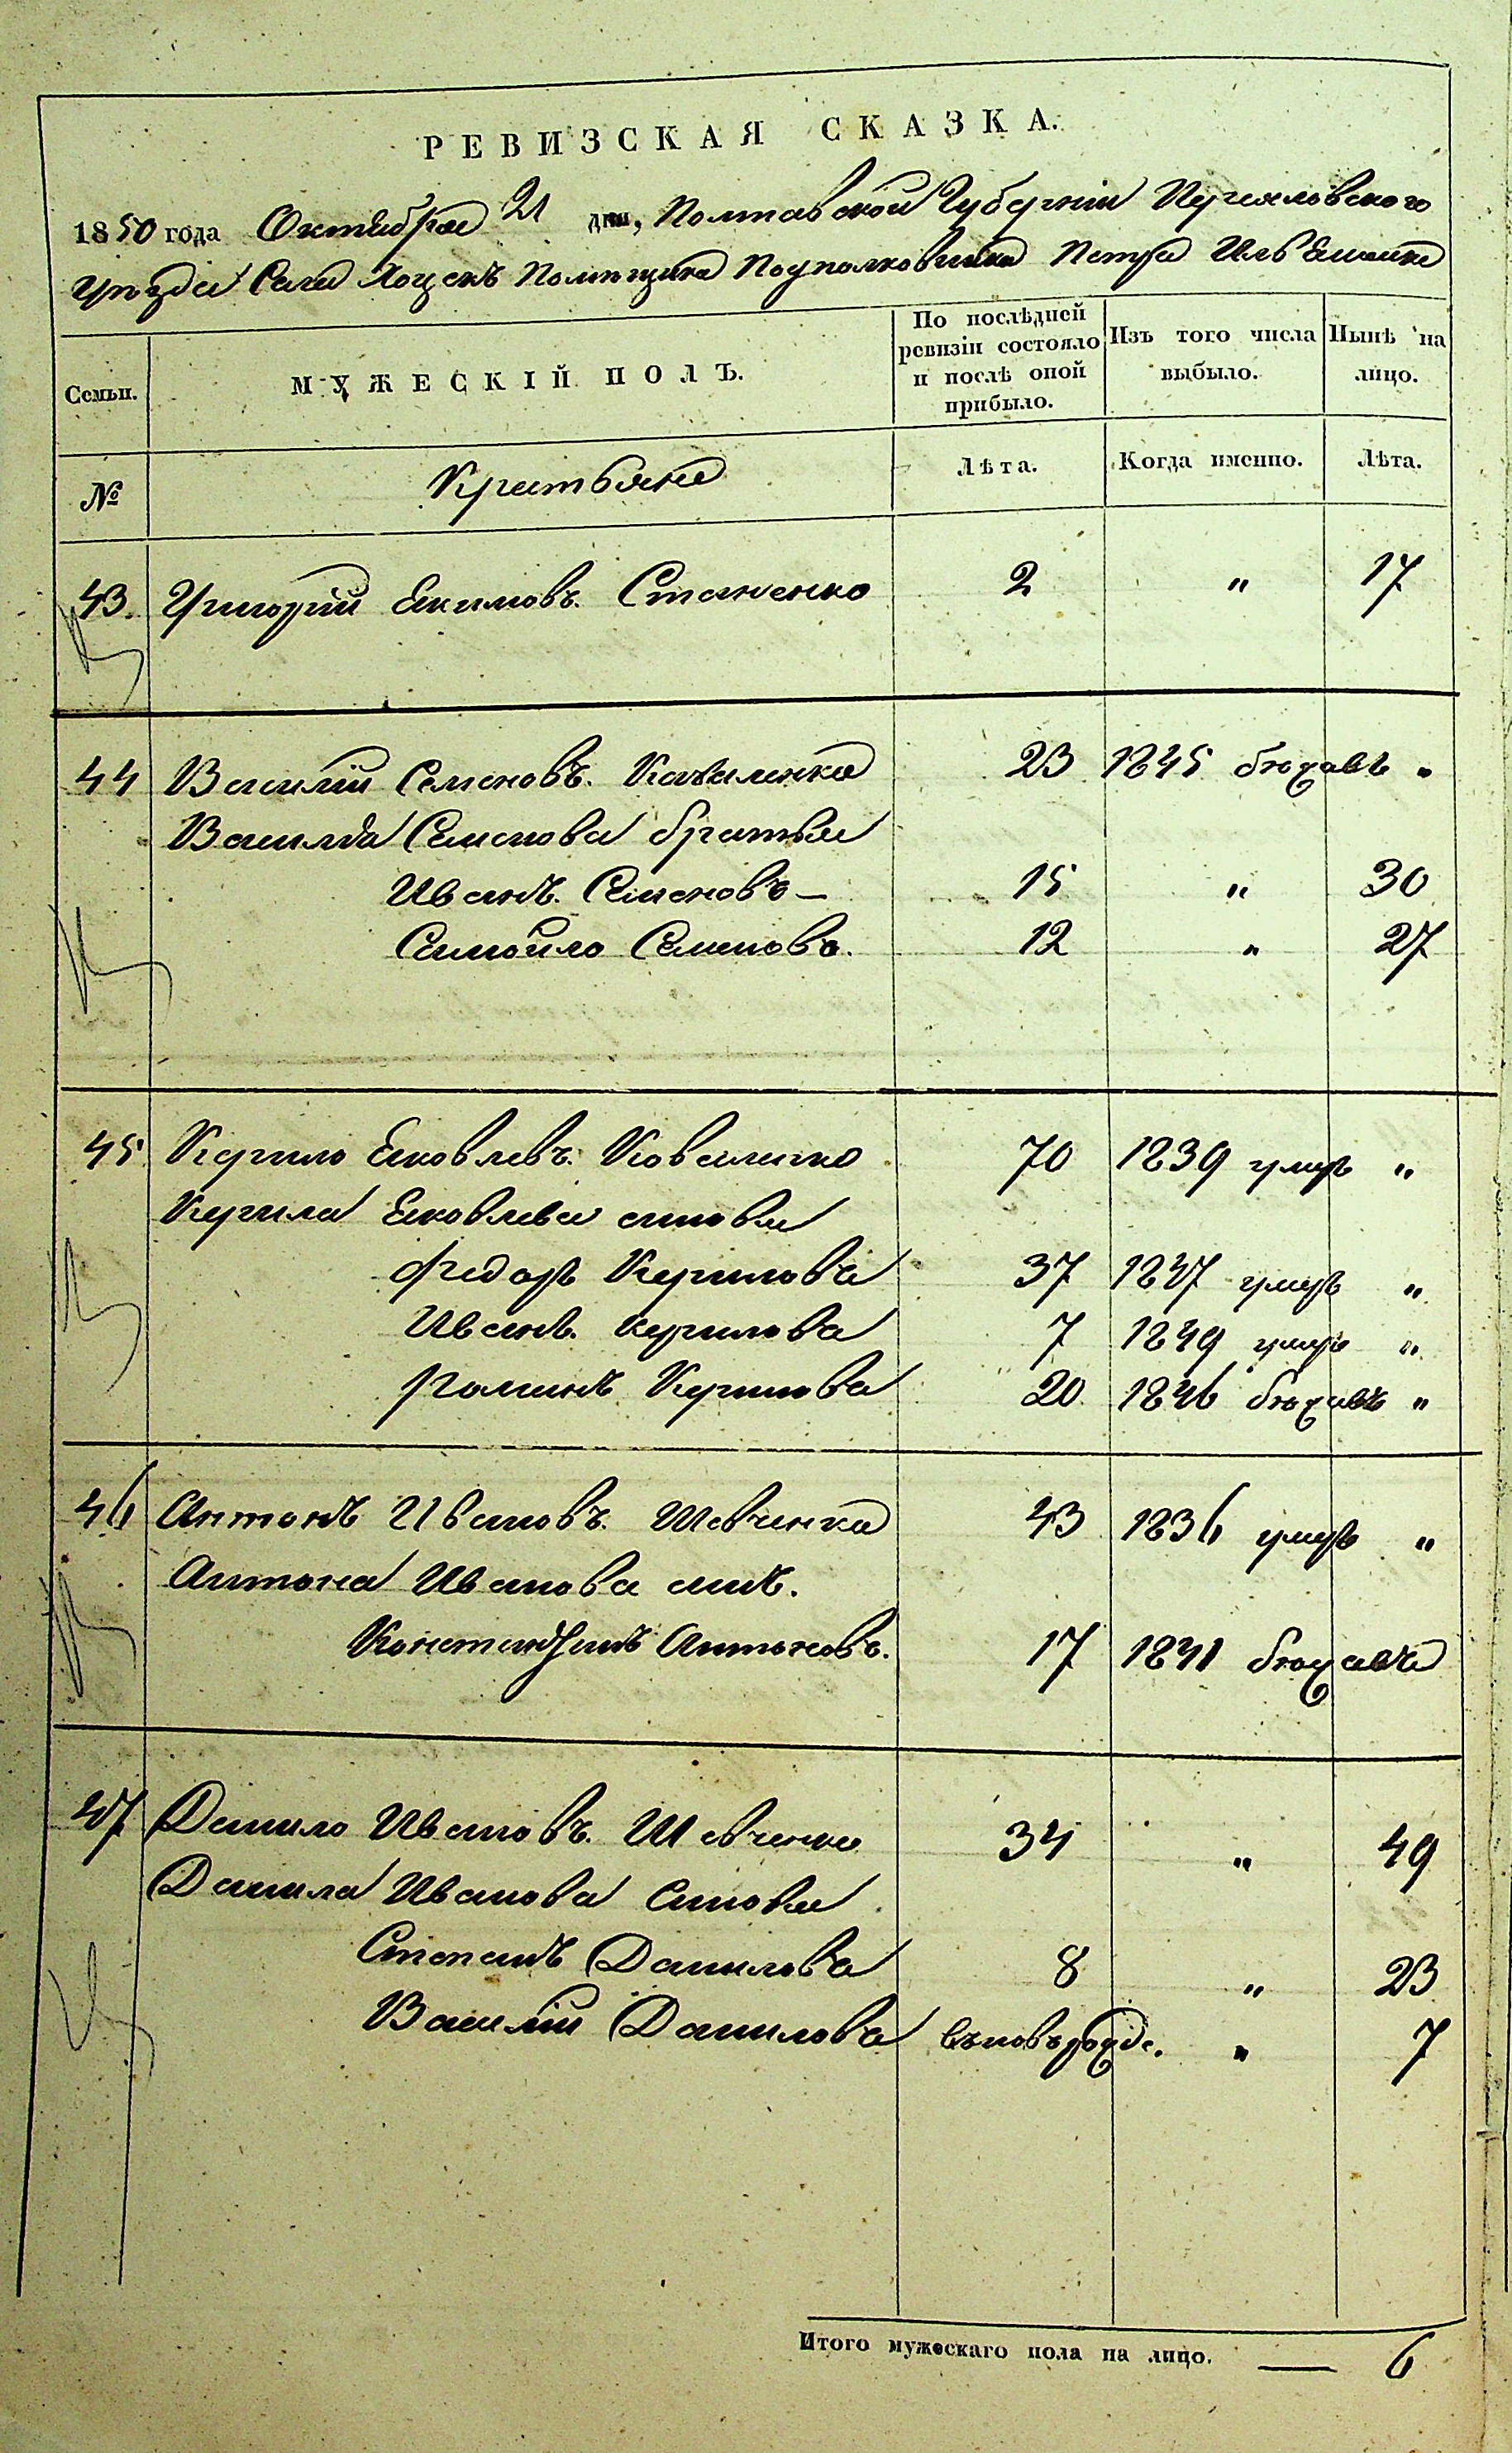 РЕВИЗСКАЯ СКАЗКА.
1850 года Октября 21 дня, Полтавской Губернии Переяловского
Уезда Села Хоцекъ Помещика Подполковника Петра
Семьи.
МУЖЕСКІЙ ПОЛЪ.
По послѣдней ревизіи состояло и послѣ оной прибыло.
Изъ того числа выбыло.
Нынѣ на лицо.
№
Крестьяне
Лѣта.
Когда именно.
Лѣта.
43. Григорий Екимовъ. Стаженко 2 " 17
44 Василий Семеновъ. Каваленко 23 1845 бѣжавъ "
Василья Семенова братья
Иванъ. Семеновъ – 15 " 30
Самойло Семеновъ. 12 " 27
45 Кирило Яковлевъ. Коваленко 70 1839 умеръ "
Кирила Яковлева сыновья
Федоръ Кирилова 37 1837 умеръ "
Иванъ. Кирилова 7 1849 умеръ "
Романъ Кирилова 20 1846 бѣжавъ "
46 Антонъ Ивановъ. Шевченко 43 1836 умеръ "
Антона Иванова сынъ.
Константинъ Антоновъ. 17 1841 бѣжавъ
47 Данило Ивановъ. Шевченко 34 " 49
Данила Иванова Сыновья
Степанъ Данилова 8 " 23
Василий Данилова въновърожде. " 7
Итого мужескаго пола на лицо. — 6